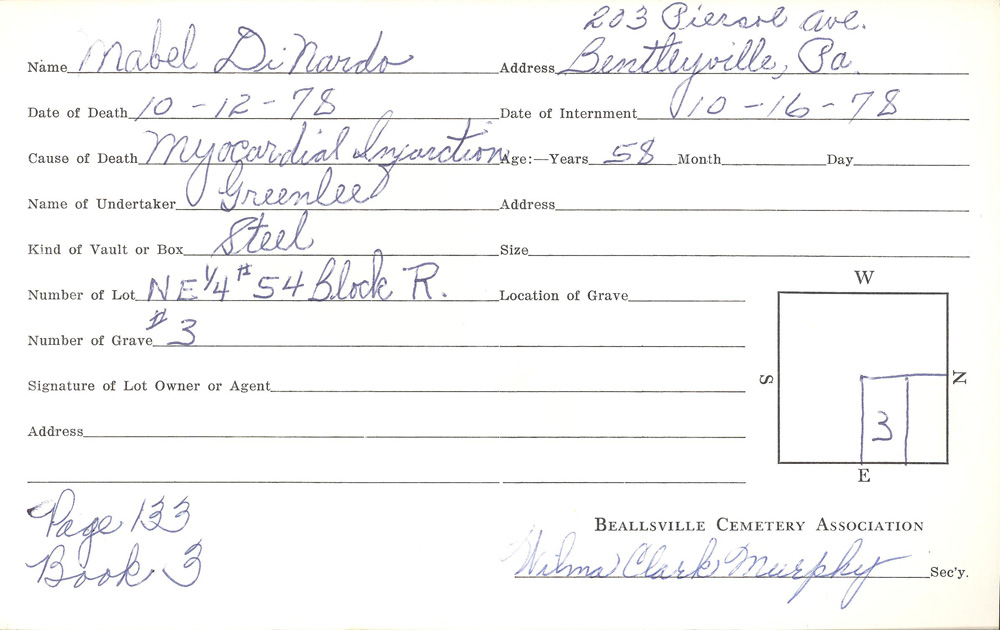 203 Piersol Ave.
Name Mabel DiNardo Address Bentleyville, Pa.
Date of Death 10-12-78 Date of Internment 10-16-78
Cause of Death Myocardial Infarction Age:—Years 58 Month Day
Name of Undertaker Greenlee Address
Kind of Vault or Box Steel Size
Number of Lot NE 1/4 # 54 Block R. Location of Grave
Number of Grave # 3
Signature of Lot Owner or Agent
Address
W
S
N
3
E
Page 133
Book 3
BEALLSVILLE CEMETERY ASSOCIATION
Wilma Clark Murphy Sec'y.